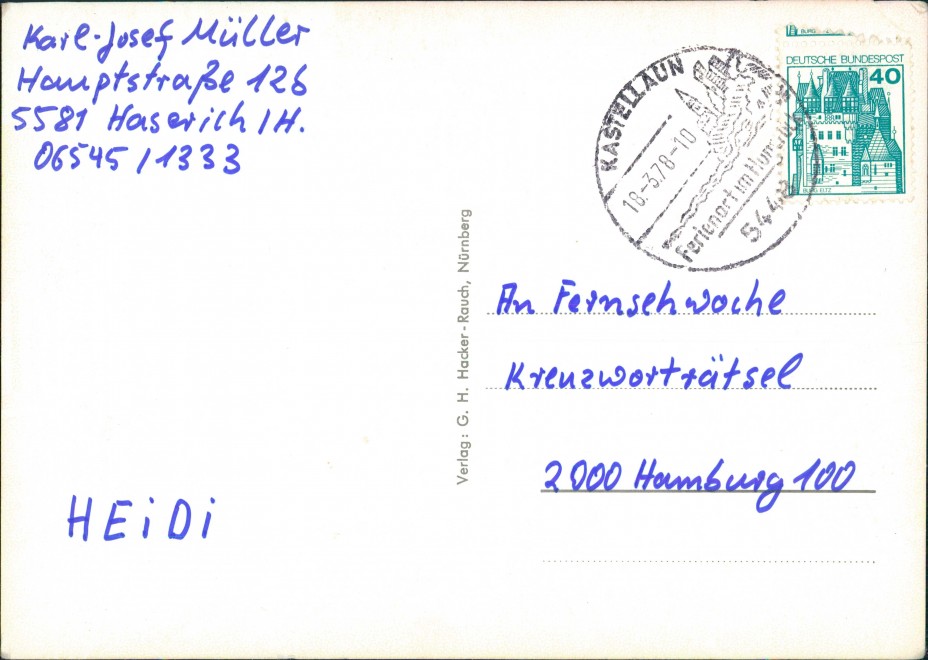 Karl-Josef Müller
Hauptstraße 126
5581 Haserich/H.
06545/1333
HEiDi
Verlag: G. H. Hacker-Rauch, Nürnberg
KASTELLAUN
18.-3.78-10
Ferienort im Hunsrück
5448
BURG
DEUTSCHE BUNDESPOST
40
BURG ELTZ
An Fernsehwoche
Kreuzworträtsel
2000 Hamburg 100